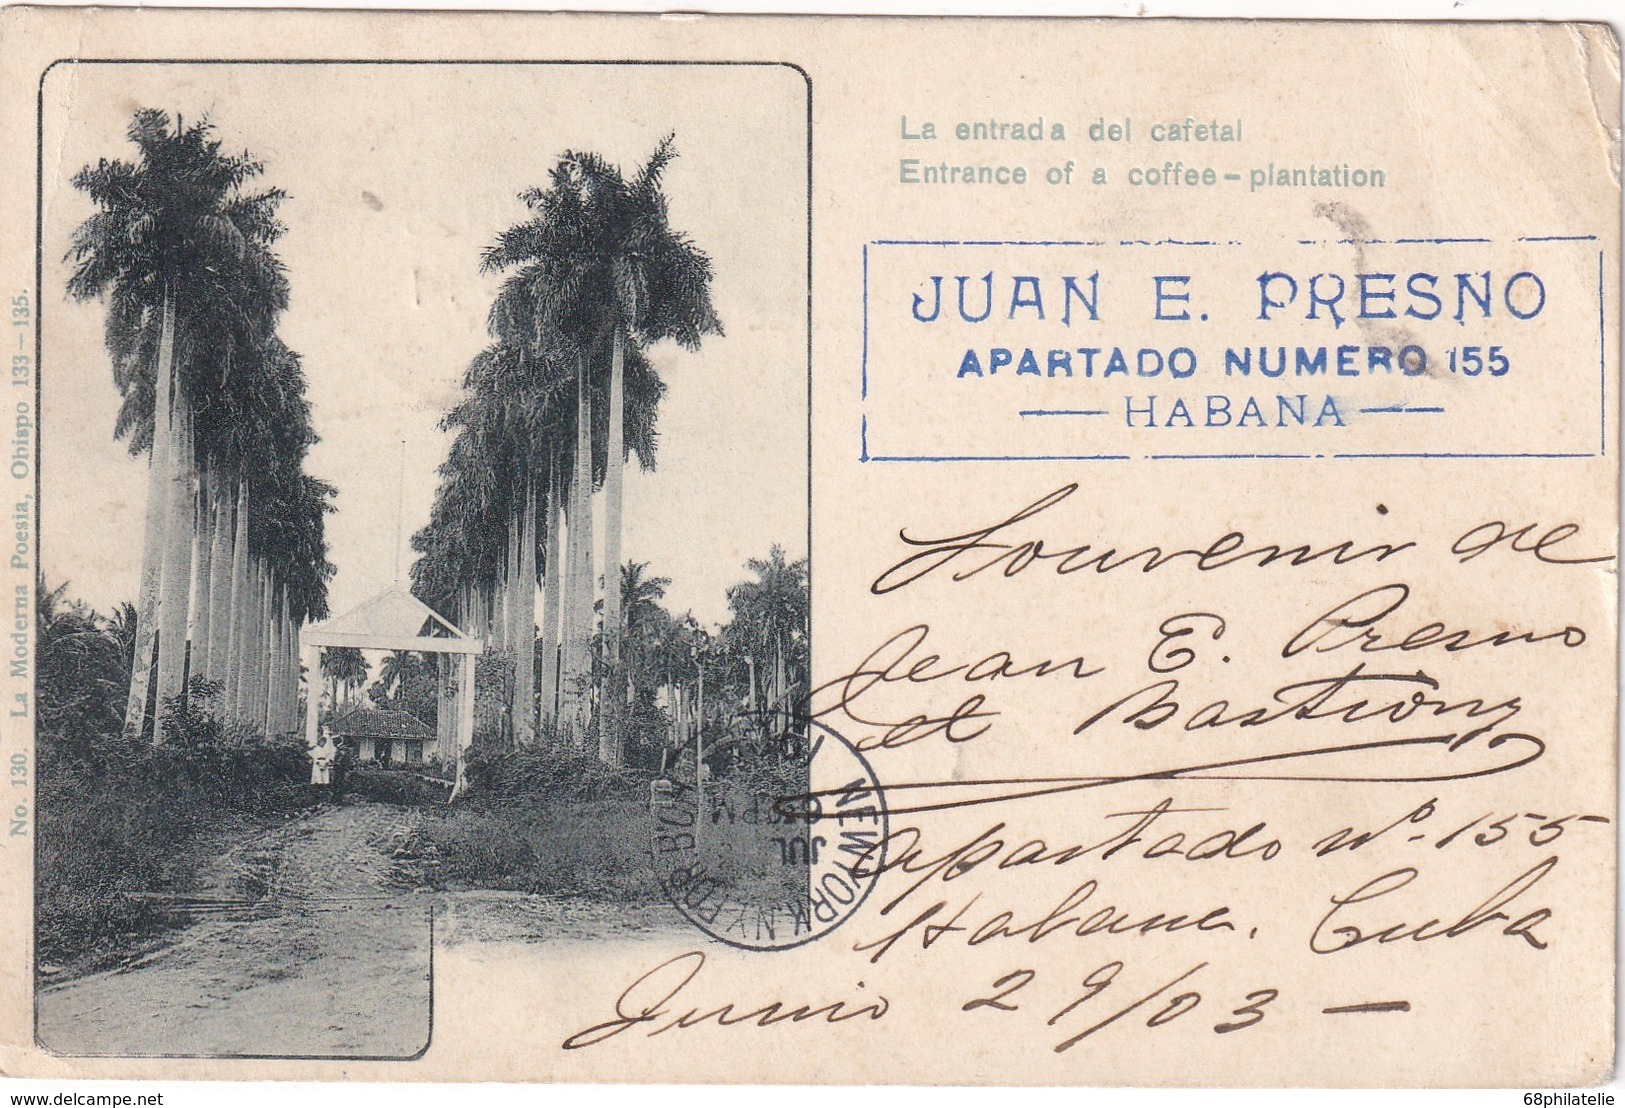 La entrada del cafetal
Entrance of a coffee-plantation
JUAN E. PRESNO
APARTADO NUMERO 155
— HABANA —
Souvenir de
Jean E. Presno
et Bastiony
Apartado Nº 155
Habana. Cuba
Junio 29/03 —
No. 130. La Moderna Poesia, Obispo 133—135.
NEW YORK, N.Y. FOR'BCH
JUL
630PM
www.delcampe.net
68philatelie